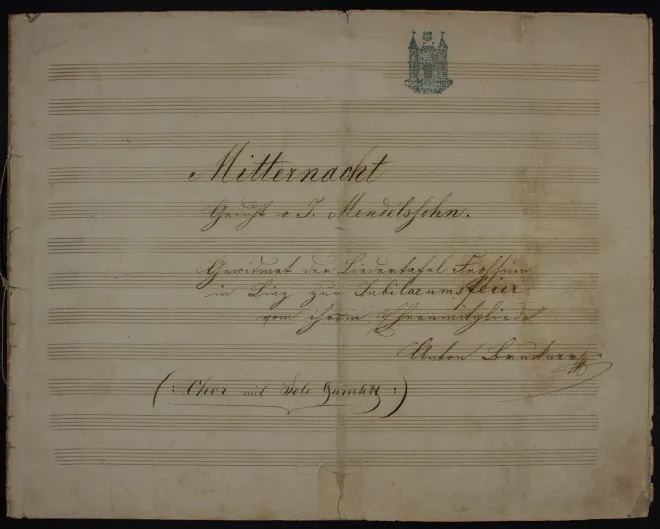 Mitternacht
Gedicht v J. Mendelssohn.
Gewidmet der Liedertafel Frohsinn
in Linz zur Jubilaeumsfeier
vom ihrem Ehrenmitgliede
Anton Bruckner
(: Chor mit Solo Quartett :)